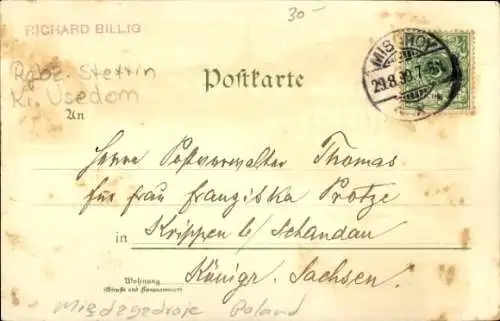 30-
RICHARD BILLIG
MISDROY
Rgbz. Stettin
29.8.99
Kr. Usedom
Postkarte
An
Herrn Postverwalter Thomas
für Frau Franziska Protze
in Krippen b/ Schandau
Wohnung
(Straße und Hausnummer)
Königr. Sachsen.
Międzyzdroje Poland